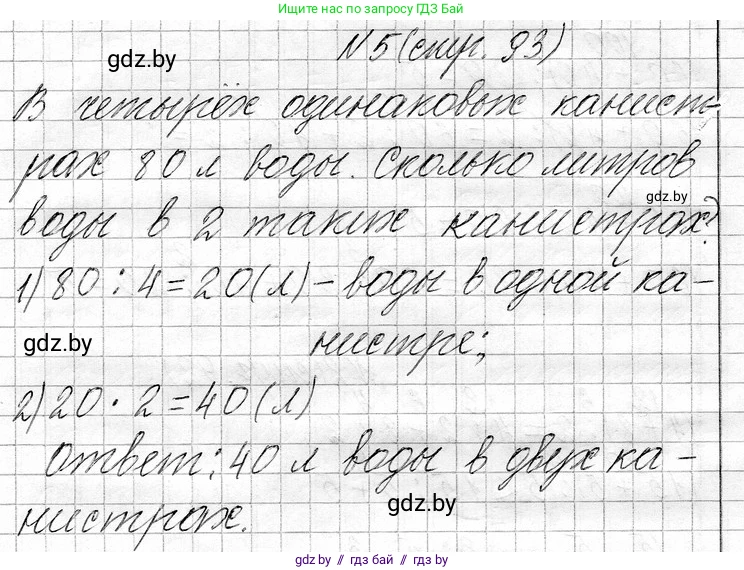 Ищите нас по запросу ГДЗ Бай
gdz.by
№5 (стр. 93)
В четырёх одинаковых канист-
рах 80 л воды. Сколько литров
gdz.by
воды в 2 таких канистрах?
1) 80 : 4 = 20 (л) – воды в одной ка-
gdz.by
нистре;
2) 20 · 2 = 40 (л)
Ответ: 40 л воды в двух ка-
gdz.by
нистрах.
gdz.by // гдз бай // gdz.by